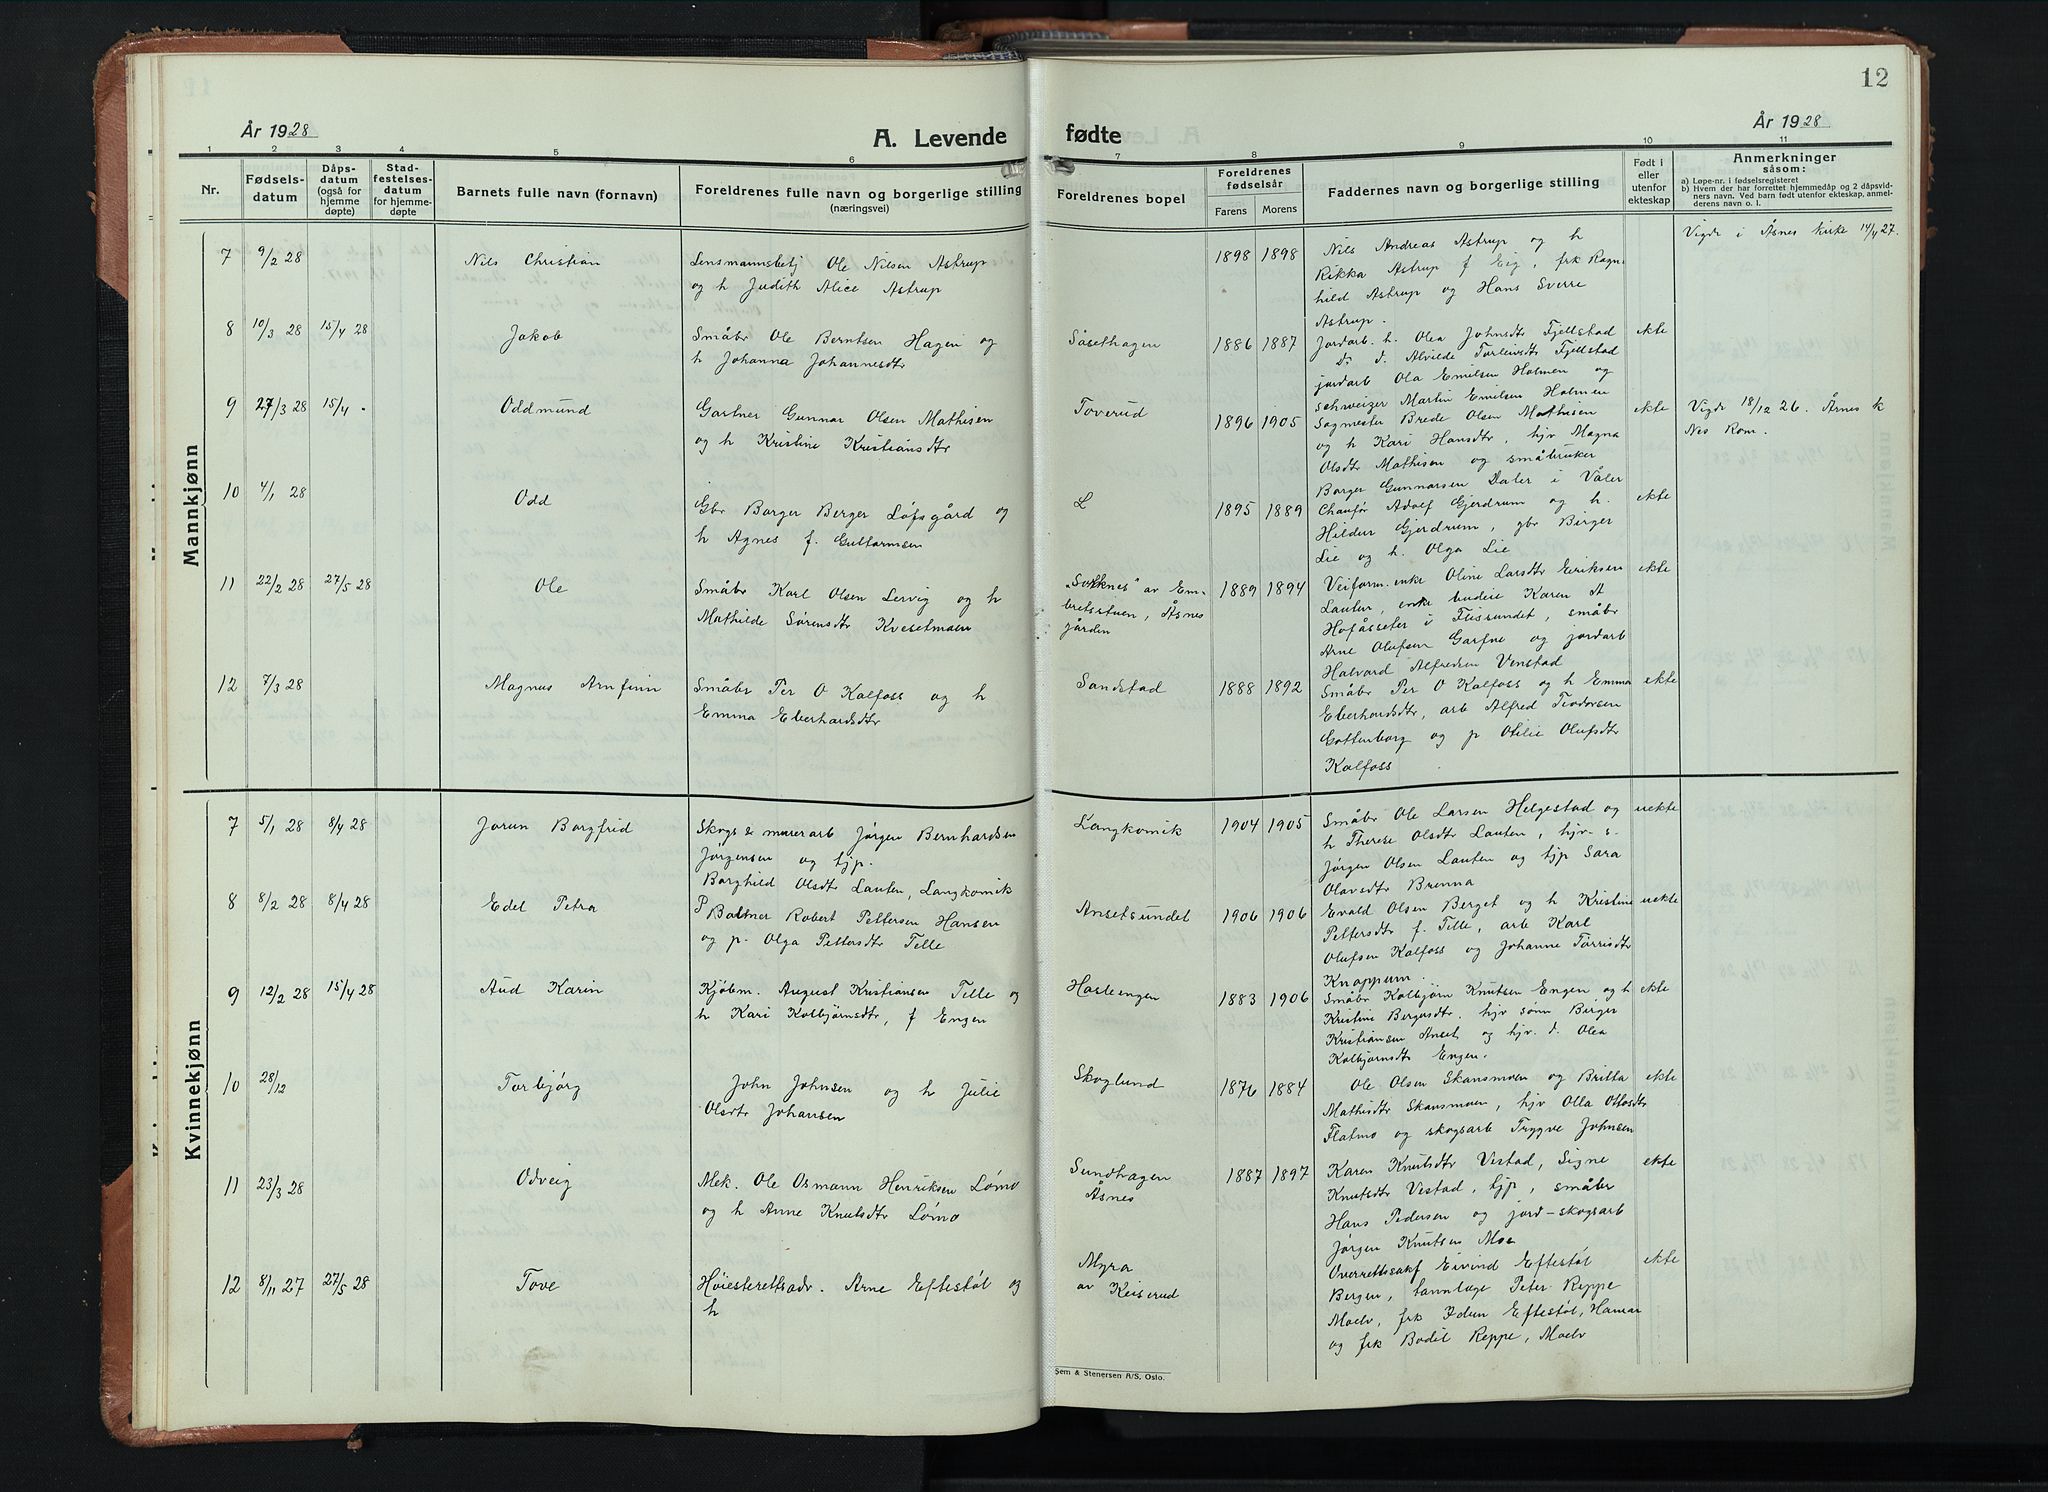 12
År 1928
A. Levende
fødte
År 1928
1 2 3 4 5 6 7 8 9 10 11
Nr.
Fødsels-
datum
Dåps-
datum
(også for
hjemme
døpte)
Stad-
festelses-
datum
for hjemme-
døpte
Barnets fulle navn (fornavn)
Foreldrenes fulle navn og borgerlige stilling
(næringsvei)
Foreldrenes bopel
Foreldrenes
fødselsår
Farens Morens
Faddernes navn og borgerlige stilling
Født i
eller
utenfor
ekteskap
Anmerkninger
såsom:
a) Løpe-nr. i fødselsregisteret
b) Hvem der har forrettet hjemmedåp og 2 dåpsvid-
ners navn. Ved barn født utenfor ekteskap, anmel-
derens navn o. l.
Mannkjønn
7 9/2 28 Nils Christian
Lensmannsbetj Ole Nilsen Astrup
og h Judith Alice Astrup
1898 1898
Nils Andreas Astrup og h
Rikka Astrup f Eig, frk Ragn-
hild Astrup og Hans Sverre
Astrup.
Vigde i Åsnes kirke 14/4 27.
8 10/3 28 15/4 28 Jakob
Småbr Ole Berntsen Hagen og
h Johanna Johannesdtr
Såsethagen
1886 1887
Jordarb. h. Olea Johnsdtr Fjellstad
Ds d. Alvilde Torleivsdtr Fjellstad
jordarb Ola Emilsen Holmen og
schweizer Martin Emilsen Holmen
ekte
9 27/3 28 15/4 - Oddmund
Gartner Gunnar Olsen Mathisen
og h Kristine Kristiansdtr
Toverud
1896 1905
Sagmester Brede Olsen Mathisen
og h Kari Hansdtr, hjv Magna
Olsdtr Mathisen og småbruker
Borger Gunnarsen Daler i Våler
ekte
Vigde 18/12 26. Årnes k
Nes Rom.
10 4/1 28 Odd
Gbr Borger Berger Løfsgård og
h Agnes f. Guttormsen
L
1895 1889
Chaufør Adolf Gjerdrum og h.
Hildur Gjerdrum, gbr Birger
Lie og h. Olga Lie
ekte
11 22/2 28 27/5 28 Ole
Småbr Karl Olsen Lervig og h
Mathilde Sørensdtr Kvesetmoen
"Sorknes" av Em-
bretsstuen, Åsnes
gården
1889 1894
Veiform. enke Oline Larsdtr Eriksen
Lauten, enke budeie Karen A
Hofåsseter i Flisundet, småbr
Arne Olufsen Garfne og jordarb
Halvard Alfredsen Venstad
ekte
12 7/3 28 Magnus Arnfinn
Småbr Per O Kalfoss og h
Emma Eberhardsdtr
Sandstad
1888 1892
Småbr Per O Kalfoss og h Emma
Eberhardsdtr, arb Alfred Teodorsen
Gottenborg og p Otilie Olufsdtr
Kalfoss
ekte
Kvinnekjønn
7 5/1 28 8/4 28 Jorun Borgfrid
Skogs & murerarb Jørgen Bernhardsen
Jørgensen og tjp.
Borghild Olsdtr Lauten, Langkomik
Langkomik
1904 1905
Småbr Ole Larsen Helgestad og
h Therese Olsdtr Lauten, hjv. s.
Jørgen Olsen Lauten og tjp Sara
Olavsdtr Brenna
uekte
8 8/2 28 8/4 28 Edel Petra
P Baltner Robert Pettersen Hansen
og p. Olga Pettersdtr Telle
Ansetsundet
1906 1906
Evald Olsen Berget og h Kristine
Pettersdtr f. Telle, arb Karl
Olufsen Kalfoss og Johanne Torrisdtr
Knappum.
uekte
9 12/2 28 15/4 28 Aud Karin
Kjøbm. August Kristiansen Telle og
h Kari Kolbjørnsdtr, f Engen
Hasleengen
1883 1906
Småbr Kolbjørn Knutsen Engen og h
Kristine Bergersdtr. hjv sønn Birger
Kristiansen Anset og hjv. d. Olea
Kolbjørnsdtr Engen.
ekte
10 28/12 Torbjørg
John Johnsen og h Julie
Olsdtr Johansen
Skoglund
1876 1884
Ole Olsen Skansmoen og Britta
Mathisdtr Skansmoen, hjv Olla Ottosdtr
Flatmo og skogsarb Trygve Johnsen
ekte
11 23/3 28 Odveig
Mek. Ole Osmann Henriksen Lømo
og h Anne Knutsdtr Lømo
Sundhagen
Åsnes
1887 1897
Karen Knutsdtr Vestad, Signe
Knutsdtr Vestad, tjp, småbr
Hans Pedersen og jord-skogsarb
Jørgen Knutsen Moe
ekte
12 8/11 27 27/5 28 Tove
Høiesterettsadv. Arne Eftestøl og
h
Myra
av Keiserud
Overrettssakf Eivind Eftestøl
Bergen, tannlæge Peter Reppe
Moelv, frk Idun Eftestøl, Hamar
og frk Bodil Reppe, Moelv
ekte
Sem & Stenersen A/S, Oslo.